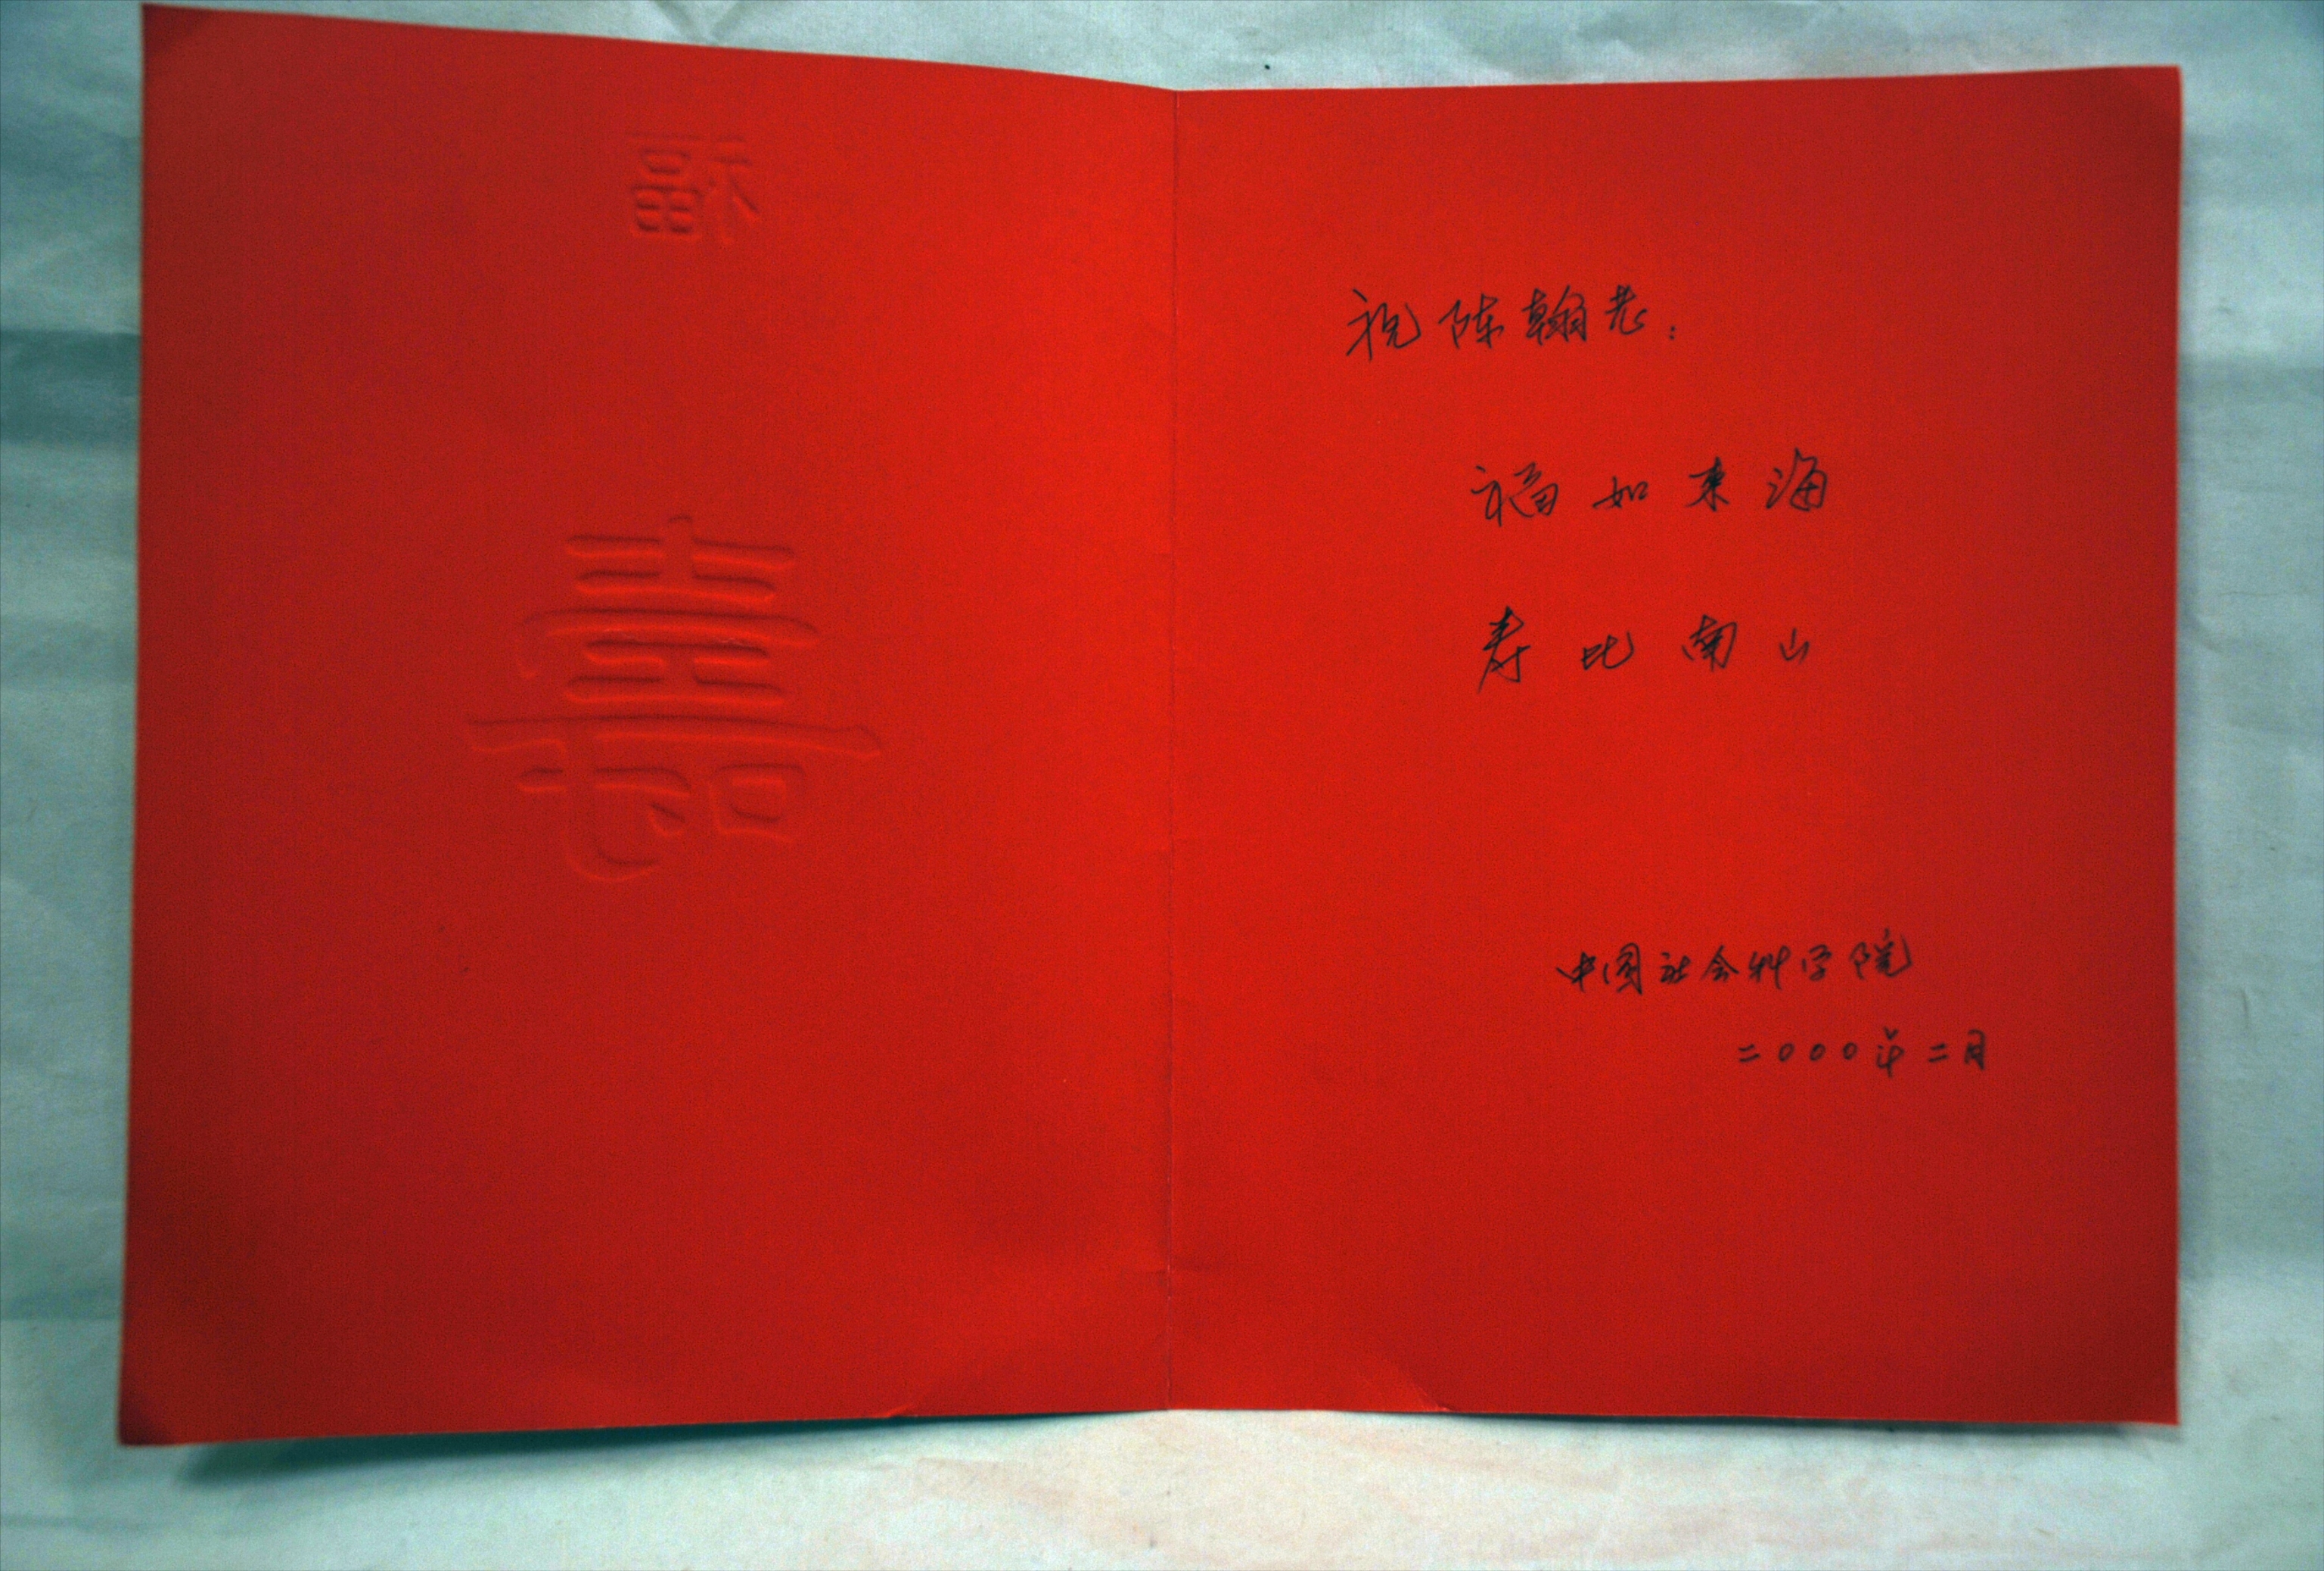 福
壽
祝陈翰老：
福如东海
寿比南山
中国社会科学院
二〇〇〇年二月